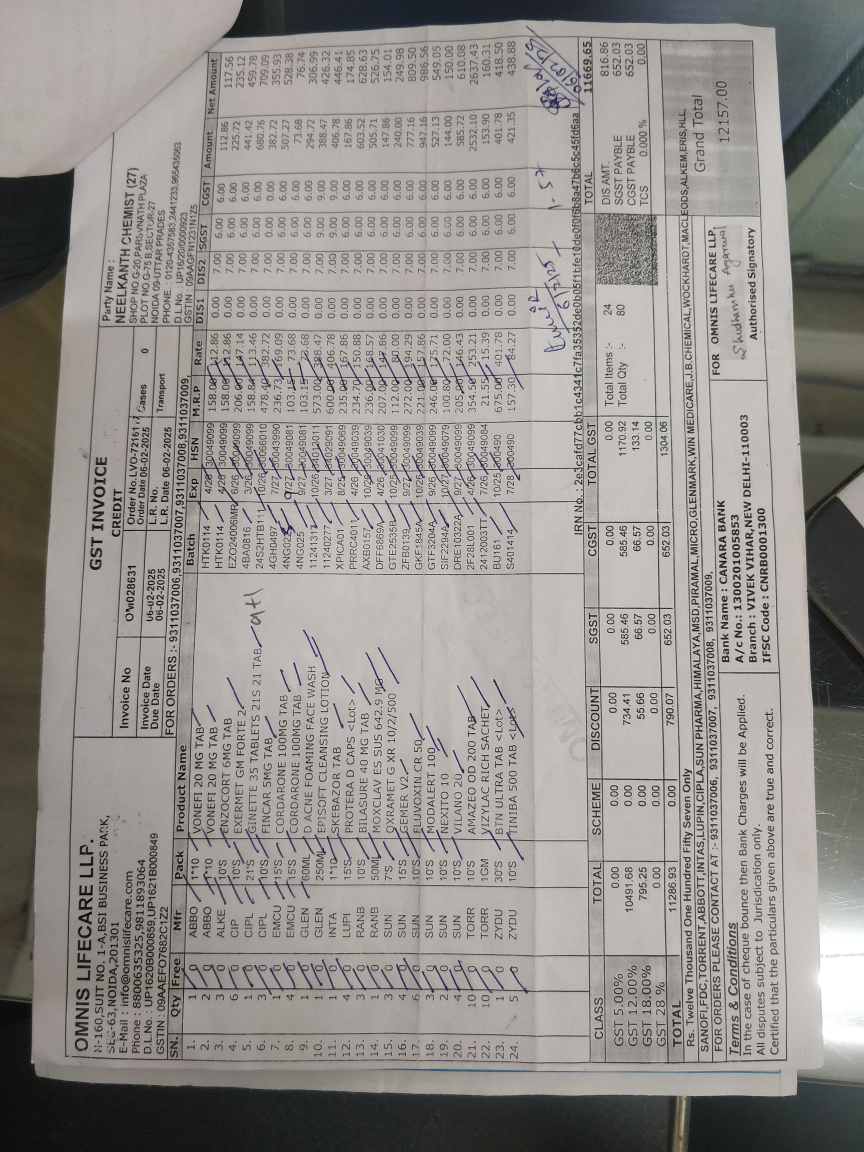 GST INVOICE
CREDIT
OMNIS LIFECARE LLP.
H-160,SUIT NO. 1-A,BSI BUSINESS PARK,
SEC-63,NOIDA,201301
E-Mail : info@omnislifecare.com
Phone : 8800635325,9811893064
D.L.No. : UP1620B000859,UP1621B000849
GSTIN : 09AAEFO7682C1Z2
Invoice No OW028631 Order No. LVO-72161
Order Date 06-02-2025
Invoice Date 06-02-2025 L.R. No. Cases 0
Due Date 06-02-2025 L.R. Date 06-02-2025 Transport
FOR ORDERS :- 9311037006,9311037007,9311037008,9311037009,
Party Name :
NEELKANTH CHEMIST (27)
SHOP NO.G-20,PARSVNATH PLAZA
PLOT NO.G-75 B,SECTOR-27
NOIDA 09-UTTAR PRADES
PHONE. : 0120-4357583,2441233,965435063
D.L.No. : UP16/20/0000923
GSTIN : 09AAGFN1231N1Z5
SN. Qty Free Mfr Pack Product Name Batch Exp HSN M.R.P Rate DIS1 DIS2 SGST CGST Amount Net Amount
1. 1 0 ABBO 1*10 VONEFI 20 MG TAB HTK0114 4/26 30049099 158.00 112.86 0.00 7.00 6.00 6.00 112.86 117.56
2. 2 0 ABBO 1*10 VONEFI 20 MG TAB HTK0114 4/26 30049099 158.00 112.86 0.00 7.00 6.00 6.00 225.72 235.12
3. 3 0 ALKE 10'S ENZOCORT 6MG TAB EZO24006MR 6/26 30049099 206.00 147.14 0.00 7.00 6.00 6.00 441.42 459.78
4. 6 0 CIP 10'S EXERMET GM FORTE 2 4BA0816 3/26 30049099 158.84 113.46 0.00 7.00 6.00 6.00 680.76 709.09
5. 1 0 CIPL 21'S GINETTE 35 TABLETS 21S 21 TAB 9+1 24S2HTB111 10/26 30066010 478.40 382.72 0.00 7.00 0.00 0.00 382.72 355.93
6. 3 0 CIPL 10'S FINCAR 5MG TAB 4GH0497 7/27 30043990 236.73 169.09 0.00 7.00 6.00 6.00 507.27 528.38
7. 1 0 EMCU 15'S CORDARONE 100MG TAB 4NG025 9/27 30049081 103.15 73.68 0.00 7.00 6.00 6.00 73.68 76.74
8. 4 0 EMCU 15'S CORDARONE 100MG TAB 4NG025 9/27 30049081 103.15 73.68 0.00 7.00 6.00 6.00 294.72 306.99
9. 1 0 GLEN 60ML D ACNE FOAMING FACE WASH 10/26 34012011 573.00 388.47 0.00 7.00 9.00 9.00 388.47 426.32
10. 1 0 GLEN 250ML EPISOFT CLEANSING LOTION 11240277 3/27 34029091 600.00 406.78 0.00 7.00 9.00 9.00 406.78 446.41
11. 1 0 INTA 1*10 SKEBAZOR TAB XPICA01 8/25 30049069 235.00 167.86 0.00 7.00 6.00 6.00 167.86 174.85
12. 4 0 LUPI 15'S PROTERA D CAPS <Lot> PRRC4011 4/26 30049039 234.70 150.88 0.00 7.00 6.00 6.00 603.52 628.63
13. 3 0 RANB 10'S BILASURE 40 MG TAB AXB0157 10/25 30049039 236.00 168.57 0.00 7.00 6.00 6.00 505.71 526.75
14. 1 0 RANB 50ML MOXCLAV ES SUS 642.9 MG DFF6869A 4/26 30041030 207.00 147.86 0.00 7.00 6.00 6.00 147.86 154.01
15. 3 0 SUN 7'S OXRAMET G XR 10/2/500 GTE2535B 10/25 30049099 112.00 80.00 0.00 7.00 6.00 6.00 240.00 249.98
16. 4 0 SUN 15'S GEMER V2 ZFB0139 9/27 30049099 272.00 194.29 0.00 7.00 6.00 6.00 777.16 809.50
17. 6 0 SUN 10'S FLUVOXIN CR 50 GKF1845A 10/26 30049039 221.00 157.86 0.00 7.00 6.00 6.00 947.16 986.56
18. 3 0 SUN 10'S MODALERT 100 GTF3204A 9/26 30049099 246.00 175.71 0.00 7.00 6.00 6.00 527.13 549.05
19. 2 0 SUN 10'S NEXITO 10 SIF2294A 10/27 30049079 100.80 72.00 0.00 7.00 6.00 6.00 144.00 150.00
20. 4 0 SUN 10'S VILANO 20 DRE10322A 9/27 30049099 205.00 146.43 0.00 7.00 6.00 6.00 585.72 610.08
21. 10 0 TORR 10'S AMAZEO OD 200 TAB 2F28L001 4/26 30049099 354.50 253.21 0.00 7.00 6.00 6.00 2532.10 2637.43
22. 10 0 TORR 1GM VIZYLAC RICH SACHET 2412003TT 7/26 30049084 21.55 15.39 0.00 7.00 6.00 6.00 153.90 160.31
23. 1 0 ZYDU 30'S BTN ULTRA TAB <Lot> BU161 10/25 300490 675.00 401.78 0.00 7.00 6.00 6.00 401.78 418.50
24. 5 0 ZYDU 10'S TINIBA 500 TAB <Lot> S401414 7/28 300490 157.30 84.27 0.00 7.00 6.00 6.00 421.35 438.88
6/2/25
1-57
CLASS TOTAL SCHEME DISCOUNT SGST CGST TOTAL GST
GST 5.00% 0.00 0.00 0.00 0.00 0.00 0.00
GST 12.00% 10491.68 0.00 734.41 585.46 585.46 1170.92
GST 18.00% 795.25 0.00 55.66 66.57 66.57 133.14
GST 28 % 0.00 0.00 0.00 0.00 0.00 0.00
TOTAL 11286.93 0.00 790.07 652.03 652.03 1304.06
Total Items :- 24
Total Qty :- 80
TOTAL 11669.65
DIS AMT. 816.86
SGST PAYBLE 652.03
CGST PAYBLE 652.03
TCS 0.000 % 0.00
Grand Total
12157.00
Rs. Twelve Thousand One Hundred Fifty Seven Only
SANOFI,FDC,TORRENT,ABBOTT,INTAS,LUPIN,CIPLA,SUN PHARMA,HIMALAYA,MSD,PIRAMAL,MICRO,GLENMARK,WIN MEDICARE,J.B.CHEMICAL,WOCKHARDT,MACLEODS,ALKEM,ERIS,HLL,
FOR ORDERS PLEASE CONTACT AT :- 9311037006, 9311037007, 9311037008, 9311037009,
Terms & Conditions
In the case of cheque bounce then Bank Charges will be Applied.
All disputes subject to Jurisdication only.
Certified that the particulars given above are true and correct.
Bank Name : CANARA BANK
A/c No.: 1300201005853
Branch : VIVEK VIHAR,NEW DELHI-110003
IFSC Code : CNRB0001300
FOR OMNIS LIFECARE LLP,
Shubhanshu Agarwal
Authorised Signatory